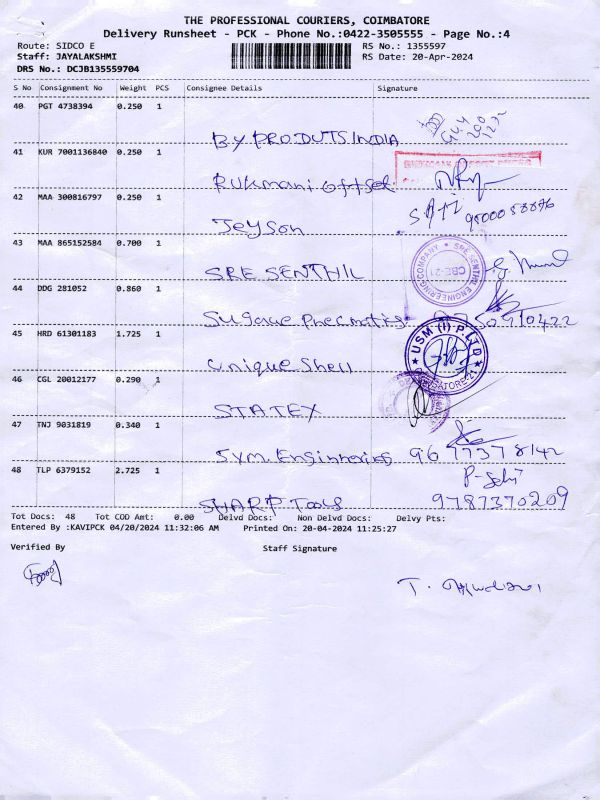 THE PROFESSIONAL COURIERS, COIMBATORE
Delivery Runsheet - PCK - Phone No.:0422-3505555 - Page No.:4
Route: SIDCO E RS No.: 1355597
Staff: JAYALAKSHMI RS Date: 20-Apr-2024
DRS No.: DCJB135559704
S No Consignment No Weight PCS Consignee Details Signature
40 PGT 4738394 0.250 1
BY PRODUTS INDIA
41 KUR 7001136840 0.250 1
Rukmani offset
42 MAA 300816797 0.250 1
Jeyson
43 MAA 865152584 0.700 1
SRE SENTHIL
SRE SENTHIL ENGINEERING COMPANY
CBE-21
44 DDG 281052 0.860 1
45 HRD 61301183 1.725 1
Unique Shell
USM (I) P.LTD
46 CGL 20012177 0.290 1
STATEX
47 TNJ 9031819 0.340 1
Sym. Enginnering 9677378142
48 TLP 6379152 2.725 1
SHARP Tools 9787370209
Tot Docs: 48 Tot COD Amt: 0.00 Delvd Docs: Non Delvd Docs: Delvy Pts:
Entered By :KAVIPCK 04/20/2024 11:32:06 AM Printed On: 20-04-2024 11:25:27
Verified By Staff Signature